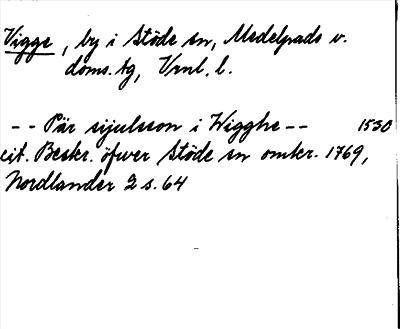 Vigge, by i Stöde sn, Medelpads v.
doms. tg, Vrnl. l.
-- Pär sijulsson i Wigghe -- 1530
cit. Beskr. öfwer Stöde sn omkr. 1769,
Nordlander 2 s. 64